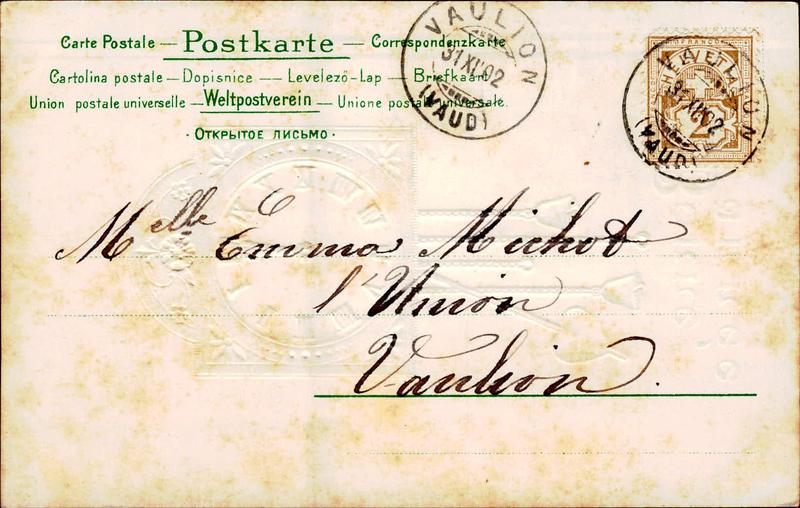 Carte Postale — Postkarte — Correspondenzkarte
Cartolina postale — Dopisnice — Levelező-Lap — Briefkaart
Union postale universelle — Weltpostverein — Unione postale universale.
· Открытое письмо ·
VAULION
31 XII 02
(VAUD)
FRANCO
HELVETIA
2
VAULION
31 XII 02
(VAUD)
Melle Emma Michot
l'Union
Vaulion.